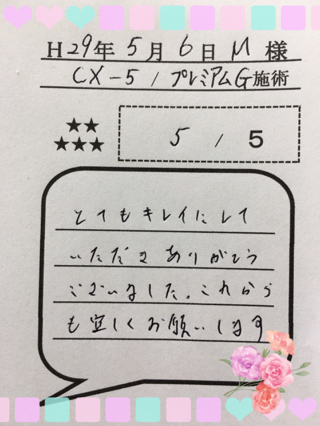 H29年5月6日M様
CX-5/プレミアムG施術
★★
★★★
5/5
とてもキレイにして
いただきありがとう
ございました。これから
も宜しくお願いします